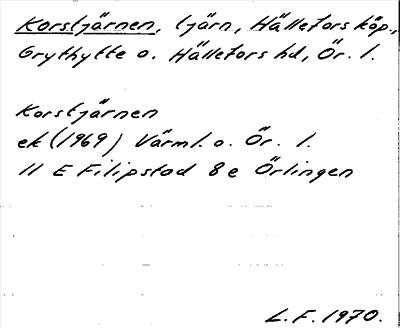 Korstjärnen, tjärn, Hällefors köp.,
Grythytte o. Hällefors hd, Ör. l.
Korstjärnen
ek (1969) Värml. o. Ör. l.
11 E Filipstad 8e Örlingen
L.F. 1970.